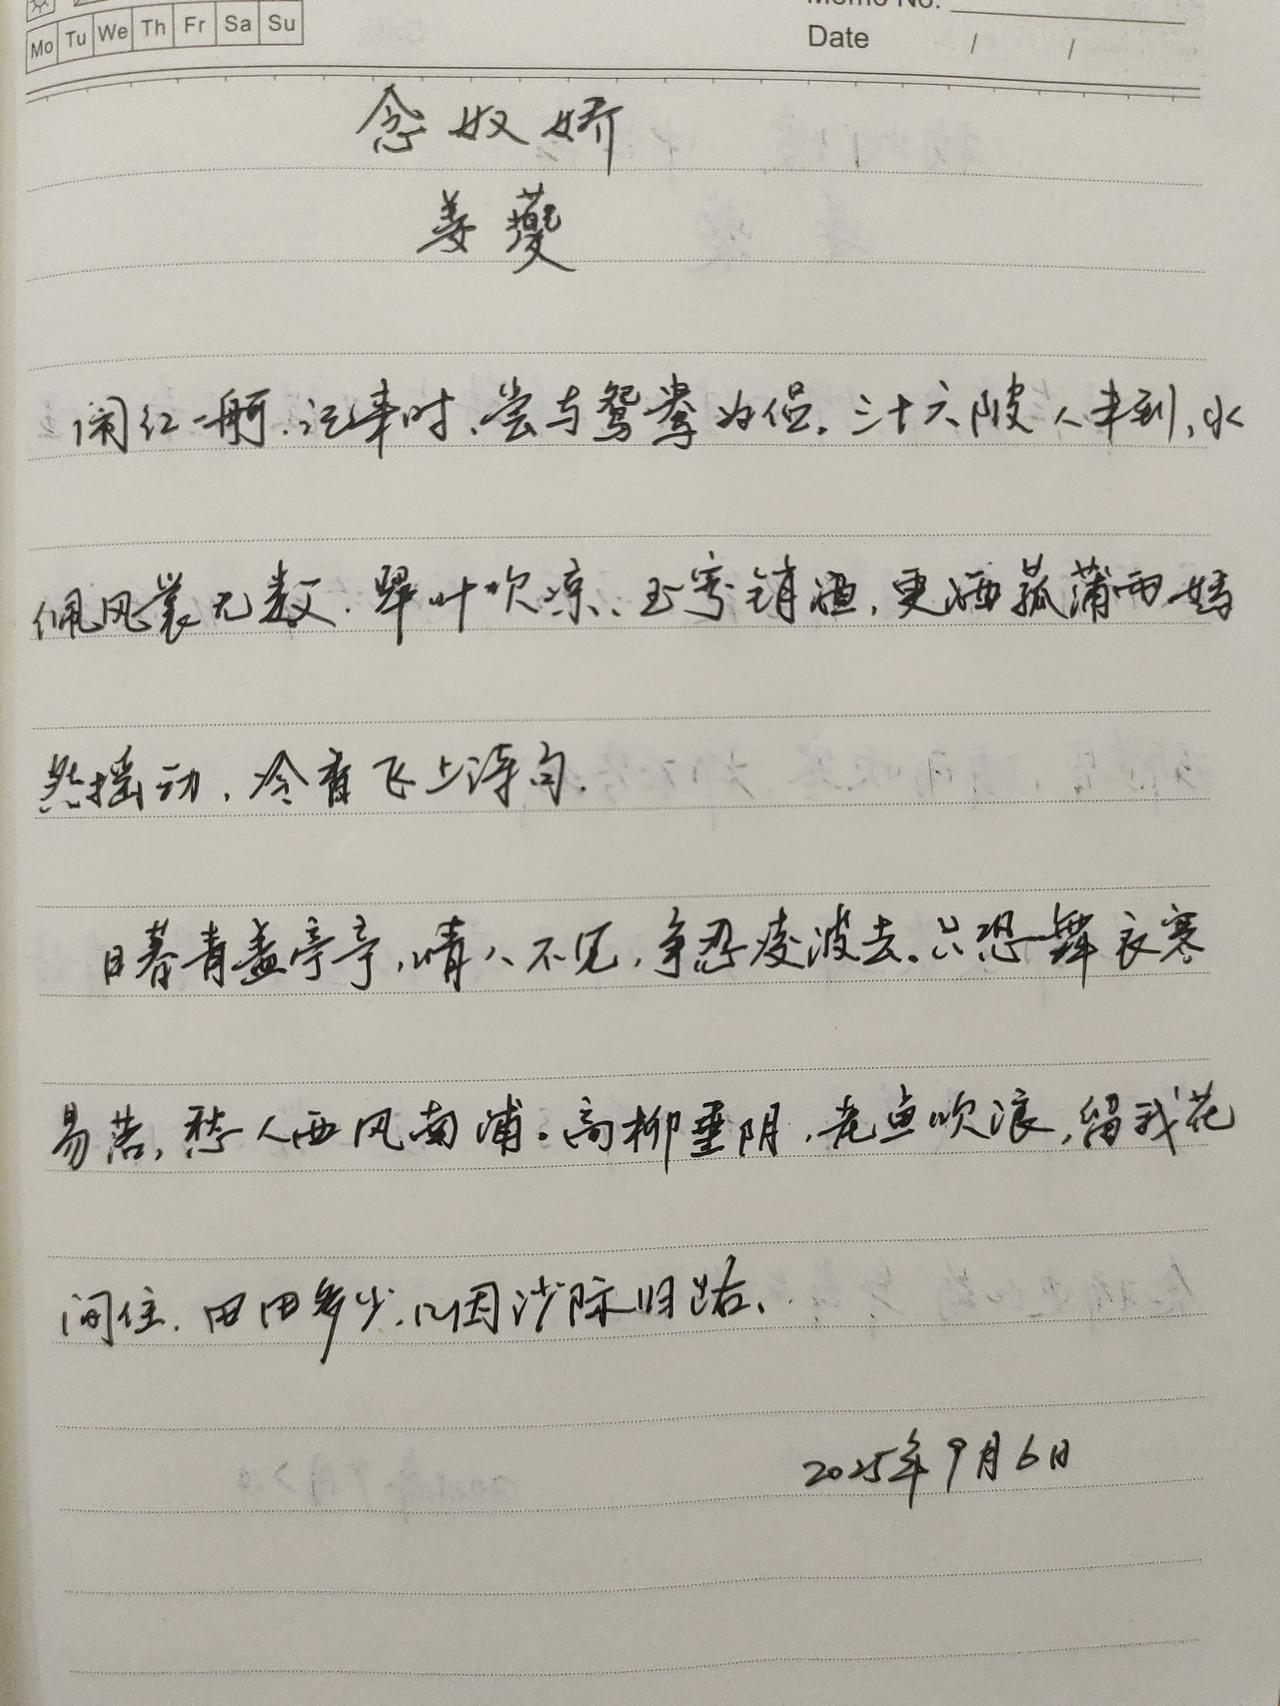 Mo Tu We Th Fr Sa Su
Memo No.
Date / /
念奴娇
姜夔
闹红一舸，记来时，尝与鸳鸯为侣。三十六陂人未到，水
佩风裳无数。翠叶吹凉、玉容销酒，更洒菰蒲雨。嫣
然摇动，冷香飞上诗句。
日暮青盖亭亭，情人不见，争忍凌波去。只恐舞衣寒
易落，愁人西风南浦。高柳垂阴，老鱼吹浪，留我花
间住。田田多少，几回沙际归路。
2025年9月6日